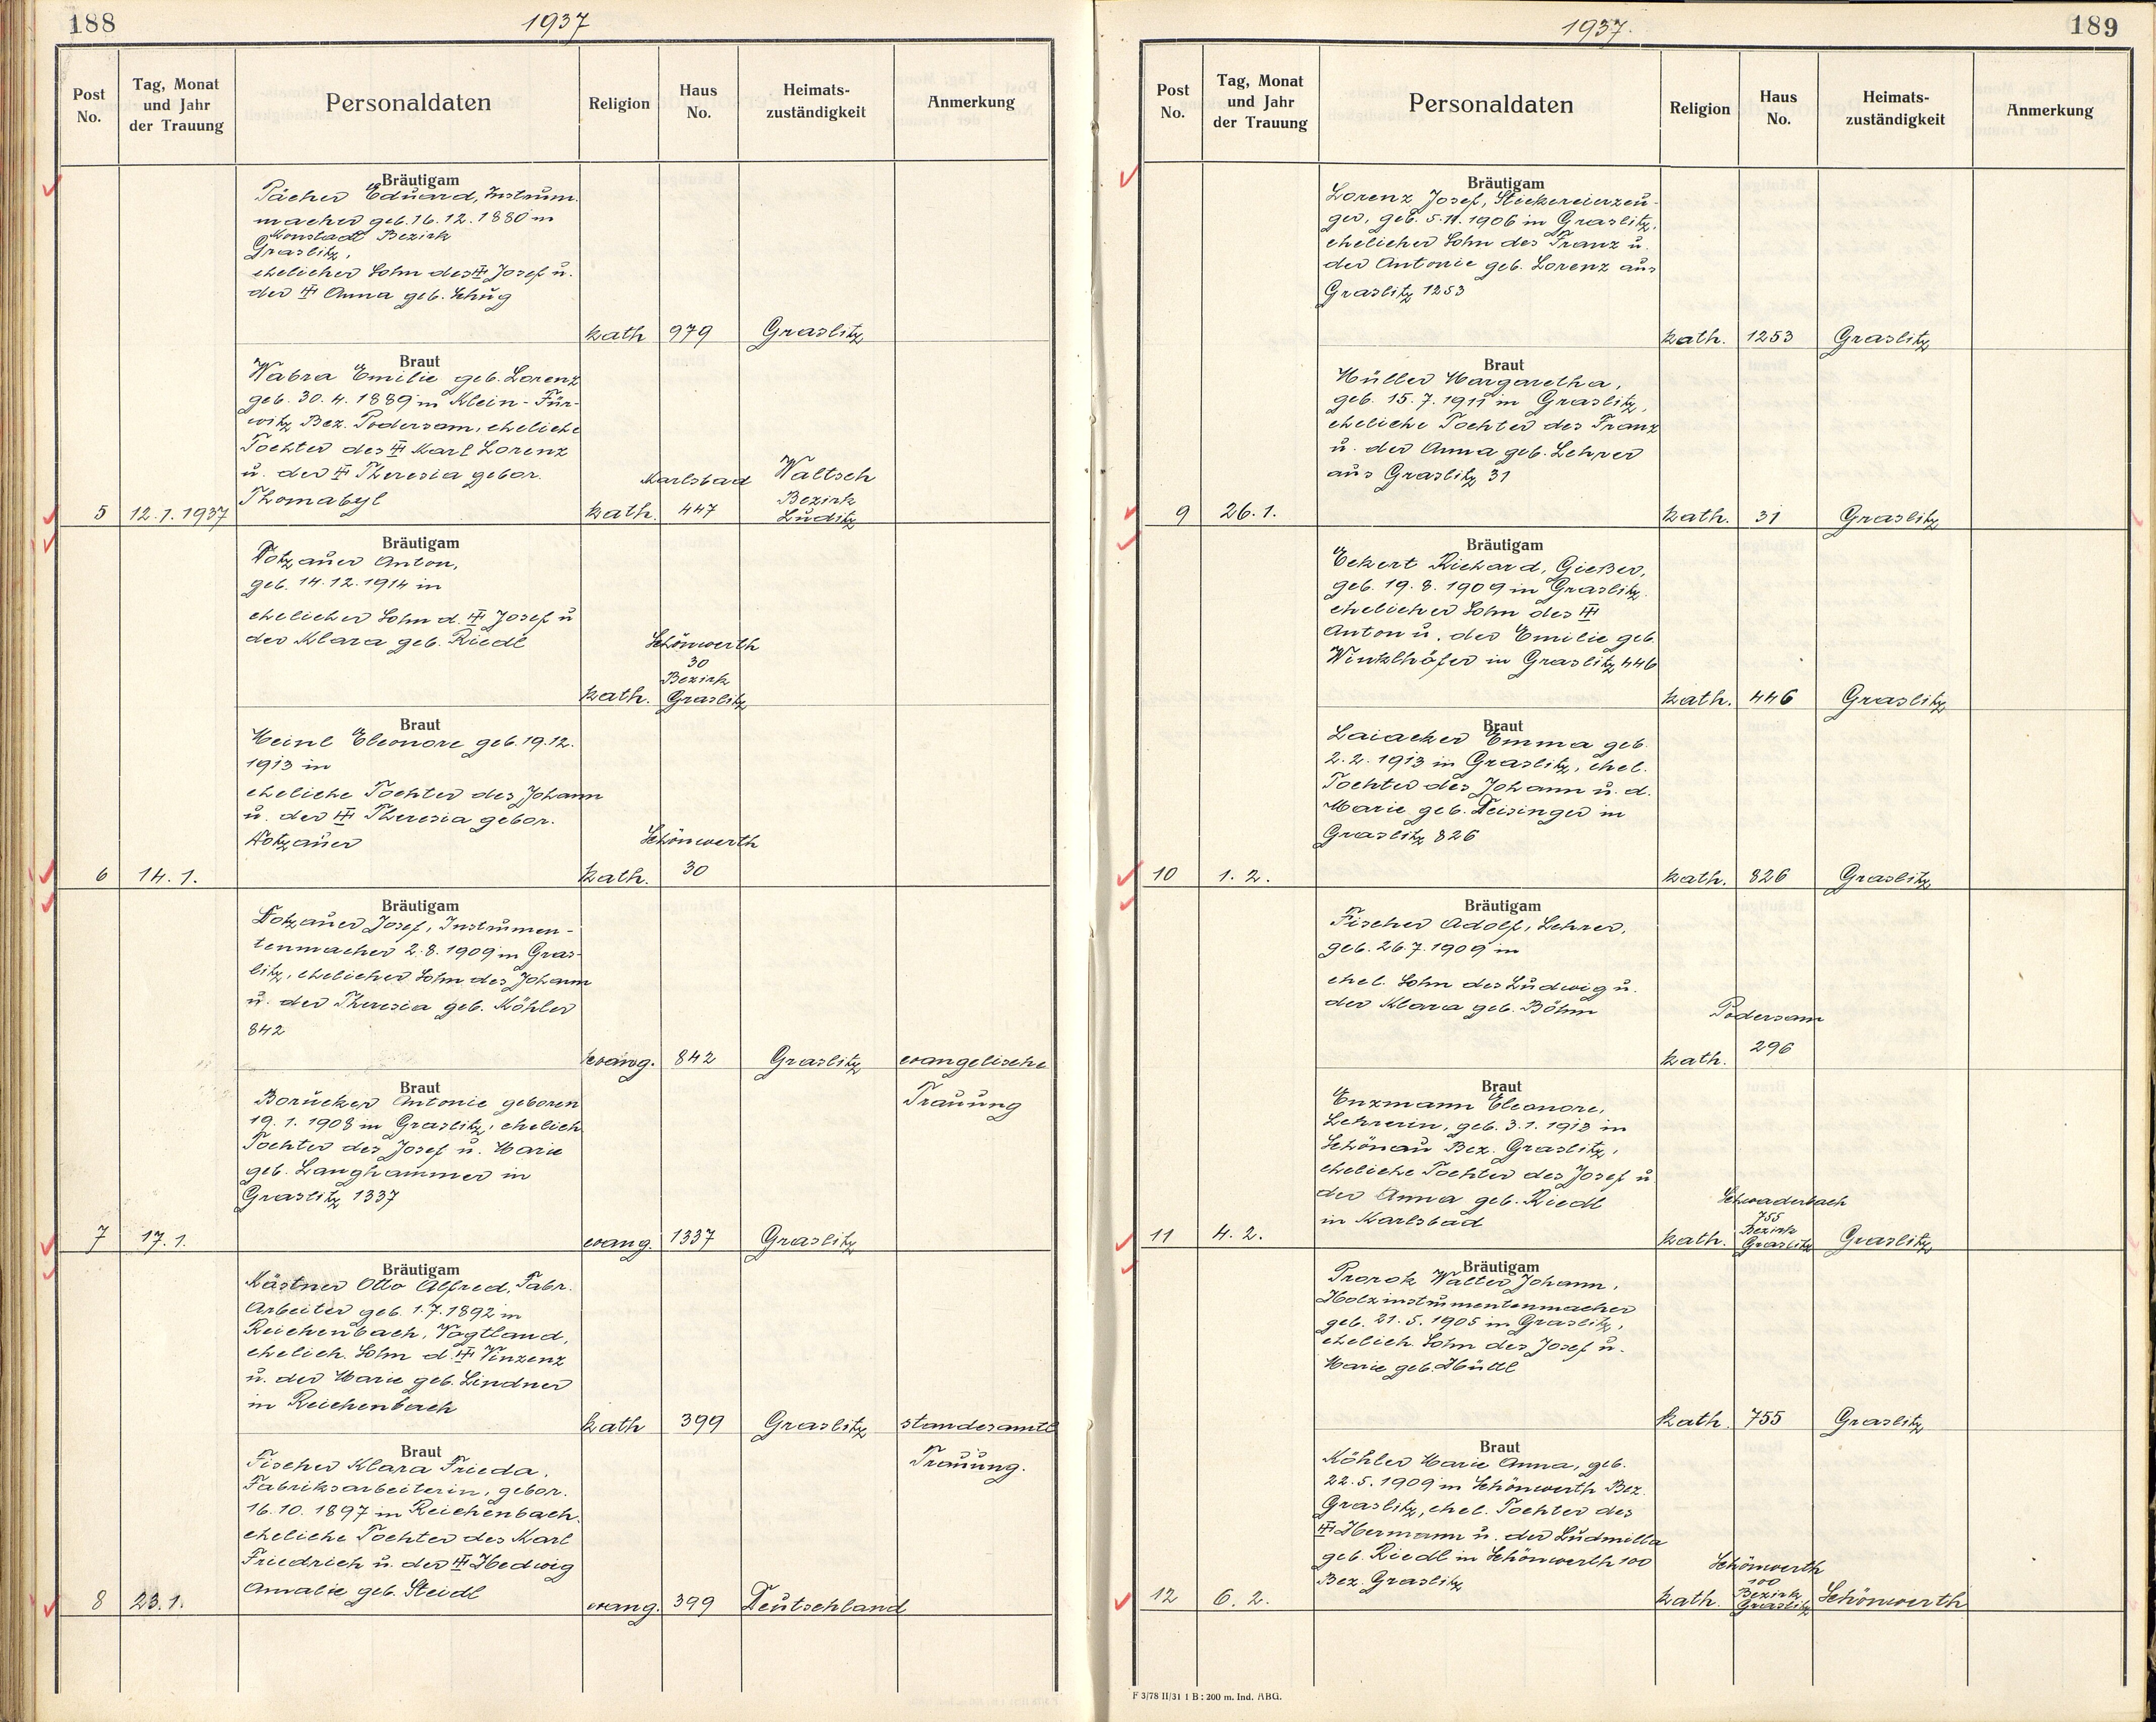 188
1937
Post No.
Tag, Monat und Jahr der Trauung
Personaldaten
Religion
Haus No.
Heimats-zuständigkeit
Anmerkung
Bräutigam
Pächer Eduard, Instrum.
macher geb. 16.12.1880 in
Konstadt Bezirk
Graslitz,
ehelicher Sohn des Josef u.
der Anna geb. Schug
kath 979 Graslitz
Braut
Wabra Emilie geb. Lorenz
geb. 30.4.1889 in Klein-Für-
witz Bez. Podersam, eheliche
Tochter des Karl Lorenz
u. der Theresia gebor.
Thomabyl
Karlsbad Waltsch
Bezirk
5 12.1.1937 kath. 447 Luditz
Bräutigam
Dotzauer Anton,
geb. 14.12.1914 in
ehelicher Sohn d. Josef u
der Klara geb. Riedl
Schönwerth
30
Bezirk
kath. Graslitz
Braut
Heinl Eleonore geb. 19.12.
1913 in
eheliche Tochter des Johann
u. der Theresia gebor.
Dotzauer
Schönwerth
6 14.1. kath. 30
Bräutigam
Dotzauer Josef, Instrumen-
tenmacher 2.8.1909 in Gras-
litz, ehelicher Sohn des Johann
u. der Theresia geb. Köhler
842
evang. 842 Graslitz evangelische
Trauung
Braut
Borucker Antonie geboren
19.1.1908 in Graslitz, ehelich
Tochter des Josef u. Marie
geb. Langhammer in
Graslitz 1337
7 17.1. evang. 1337 Graslitz
Bräutigam
Kästner Otto Alfred, Fabr.
Arbeiter geb. 1.7.1892 in
Reichenbach, Vogtland,
ehelich. Sohn d. Vinzenz
u. der Marie geb. Lindner
in Reichenbach
kath 399 Graslitz standesamtl
Trauung.
Braut
Fischer Klara Frieda,
Fabriksarbeiterin, gebor.
16.10.1897 in Reichenbach.
eheliche Tochter des Karl
Friedrich u. der Hedwig
Amalie geb. Steidl
8 23.1. evang. 399 Deutschland
1937.
189
Post No.
Tag, Monat und Jahr der Trauung
Personaldaten
Religion
Haus No.
Heimats-zuständigkeit
Anmerkung
Bräutigam
Lorenz Josef, Stickereierzeu-
ger, geb. 5.11.1906 in Graslitz,
ehelicher Sohn des Franz u.
der Antonie geb. Lorenz aus
Graslitz 1253
kath. 1253 Graslitz
Braut
Müller Margaretha,
geb. 15.7.1911 in Graslitz,
eheliche Tochter des Franz
u. der Anna geb. Lehrer
aus Graslitz 31
9 26.1. kath. 31 Graslitz
Bräutigam
Eckert Richard, Gießer,
geb. 19.8.1909 in Graslitz.
ehelicher Sohn des
Anton u. der Emilie geb.
Winklhöfer in Graslitz 446
kath. 446 Graslitz
Braut
Laiacker Emma geb.
2.2.1913 in Graslitz, ehel.
Tochter des Johann u. d.
Marie geb. Deisinger in
Graslitz 826
10 1.2. kath. 826 Graslitz
Bräutigam
Fischer Adolf, Lehrer,
geb. 26.7.1909 in
ehel. Sohn des Ludwig u.
der Klara geb. Böhm
Podersam
kath. 296
Braut
Enzmann Eleonore,
Lehrerin, geb. 3.1.1913 in
Schönau Bez. Graslitz,
eheliche Tochter des Josef u
der Anna geb. Riedl
in Karlsbad
Schwaderbach
755
Bezirk
11 4.2. kath. Graslitz Graslitz
Bräutigam
Prorok Walter Johann,
Holzinstrumentenmacher
geb. 21.5.1905 in Graslitz,
ehelich. Sohn des Josef u.
Marie geb. Hüttl
kath. 755 Graslitz
Braut
Köhler Marie Anna, geb.
22.5.1909 in Schönwerth Bez.
Graslitz, ehel. Tochter des
Hermann u. der Ludmilla
geb. Riedl in Schönwerth 100
Bez. Graslitz
Schönwerth
100
Bezirk
12 6.2. kath. Graslitz Schönwerth
F 3/78 II/31 1 B : 200 m. Ind. ABG.